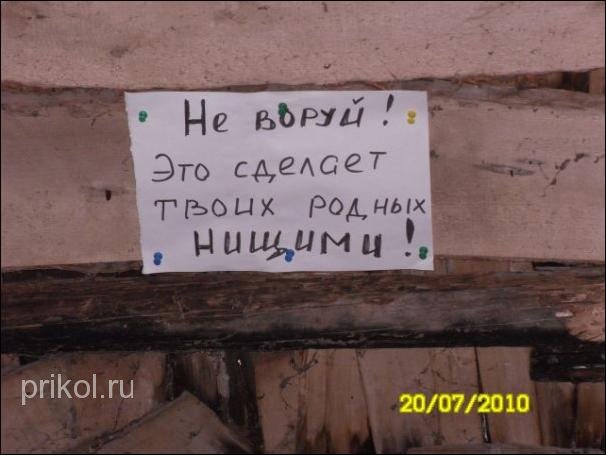 Не воруй!
Это сделает
твоих родных
нищими!
prikol.ru
20/07/2010